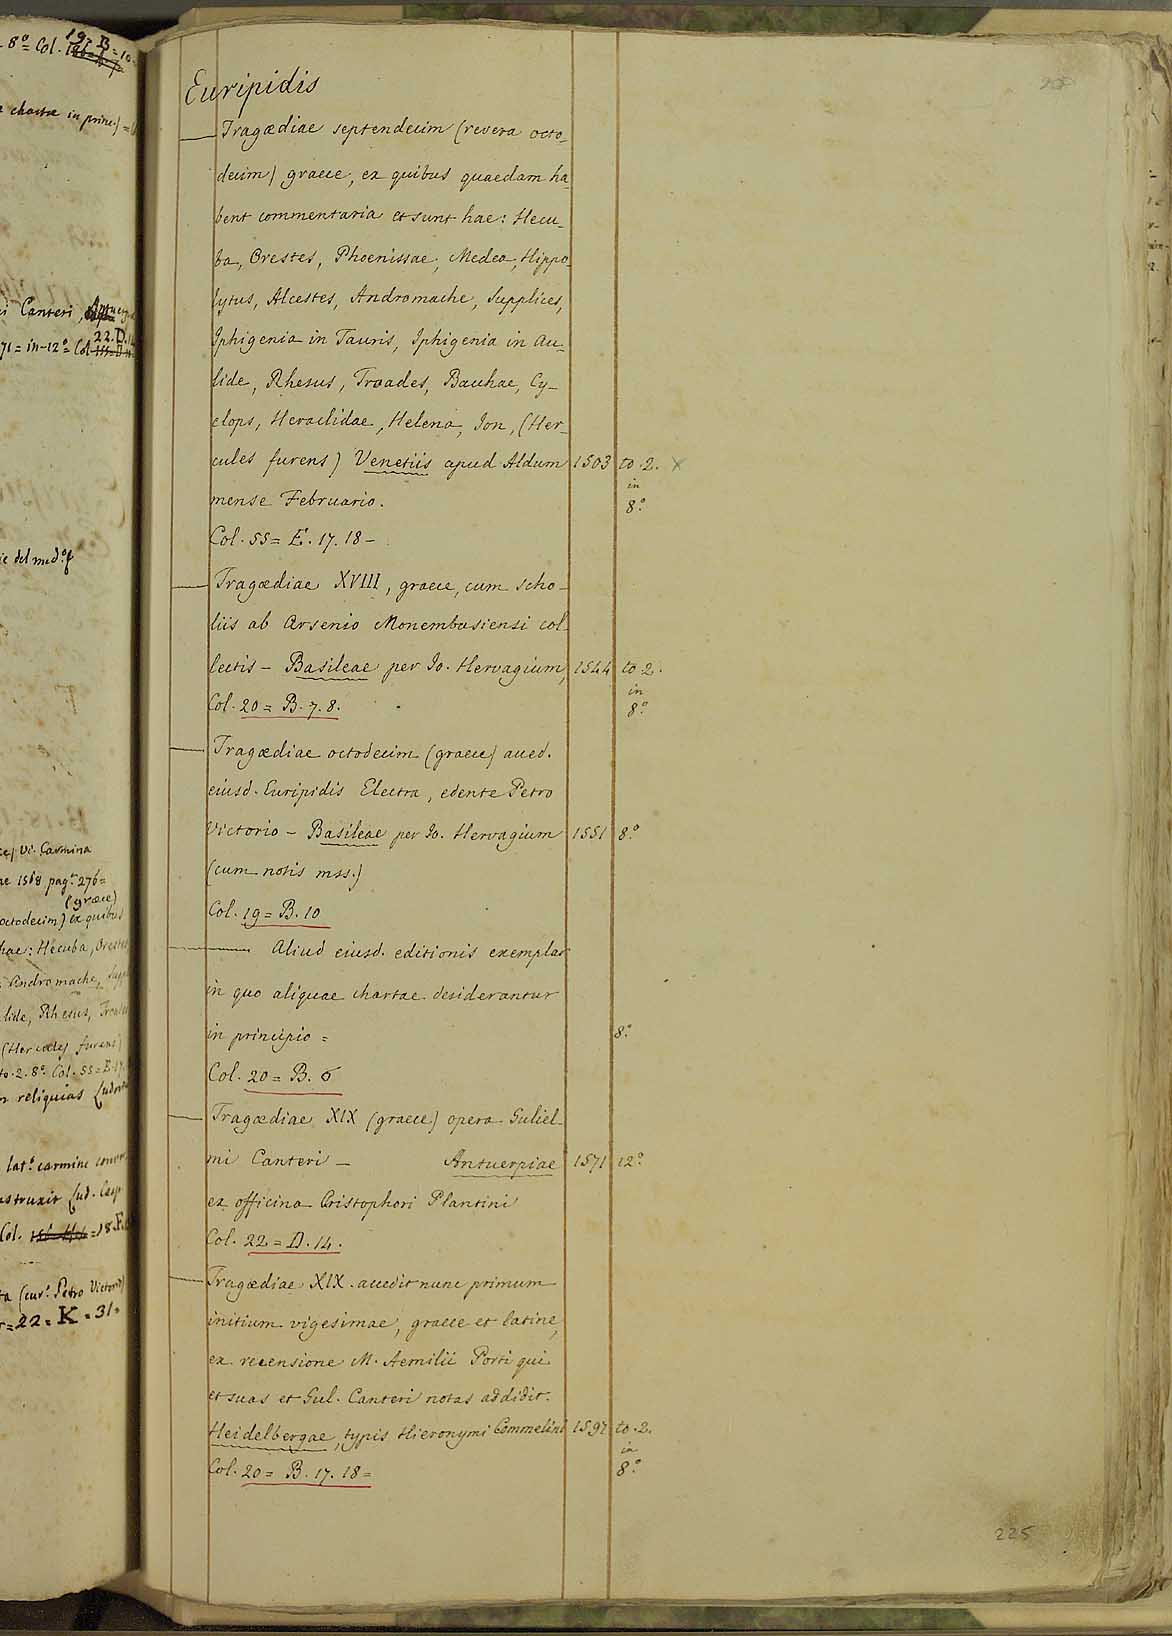 Euripidis
— Tragædiae septendecim (revera octo-
decim) graece, ex quibus quaedam ha-
bent commentaria et sunt hae: Hecu-
ba, Orestes, Phoenissae, Medea, Hippo-
lytus, Alcestes, Andromache, Supplices,
Iphigenia in Tauris, Iphigenia in Au-
lide, Rhesus, Troades, Bacchae, Cy-
clops, Heraclidae, Helena, Ion, (Her-
cules furens) Venetiis apud Aldum 1503 to. 2. x
in
mense Februario. 8.º
Col. 55 = E. 17. 18 -
— Tragædiae XVIII, graece, cum scho-
liis ab Arsenio Monembasiensi col-
lectis - Basileae per Jo. Hervagium, 1544 to 2.
in
Col. 20 = B. 7. 8. 8.º
— Tragædiae octodecim (graece) acced.
eiusd. Euripidis Electra, edente Petro
Victorio - Basileae per Jo. Hervagium 1551 8.º
(cum notis mss.)
Col. 19 = B. 10
— Aliud eiusd. editionis exemplar
in quo aliquae chartae desiderantur
in principio = 8.º
Col. 20 = B. 6
— Tragædiae XIX (graece) opera Guliel-
mi Canteri - Antuerpiae 1571 12.º
ex officina Cristophori Plantini
Col. 22 = D. 14.
— Tragædiae XIX. accedit nunc primum
initium vigesimae, graece et latine,
ex recensione M. Aemilii Porti qui
et suas et Gul. Canteri notas addidit.
Heidelbergae, typis Hieronymi Commelini 1597 to. 2.
in
Col. 20 = B. 17. 18 = 8.º
225
8.º Col. 19. B = 10
chartae in princ.) =
Canteri,
71 = in-12º = Col. 22. D. 14
del med.º
Vi. Carmina
1568 pag.ª 276 =
(græce)
octodecim) ex quibus
hae: Hecuba, Orestes
Andromache, Suppl
lide, Rhesus, Troades
(Hercules furens)
to. 2. 8º. Col. 55 = E. 17.
reliquias
lat.º carmine
Col. = 18. F.
(cur.ª Petro Victorio)
= 22. K = 31 =